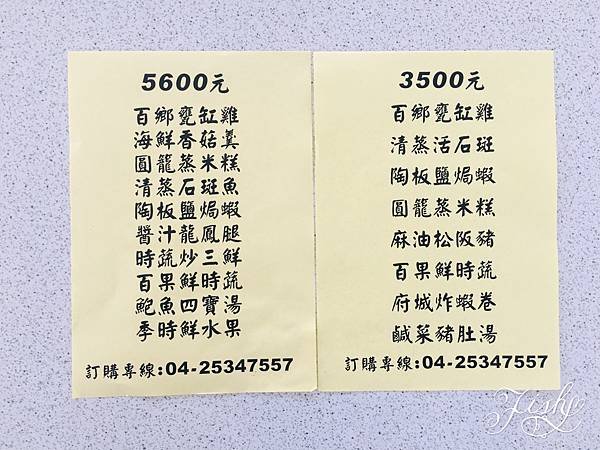 5600元
百鄉甕缸雞
海鮮香菇羹
圓籠蒸米糕
清蒸石斑魚
陶板鹽焗蝦
醬汁龍鳳腿
時蔬炒三鮮
百果鮮時蔬
鮑魚四寶湯
季時鮮水果
訂購專線:04-25347557
3500元
百鄉甕缸雞
清蒸活石斑
陶板鹽焗蝦
圓籠蒸米糕
麻油松阪豬
百果鮮時蔬
府城炸蝦卷
鹹菜豬肚湯
訂購專線:04-25347557